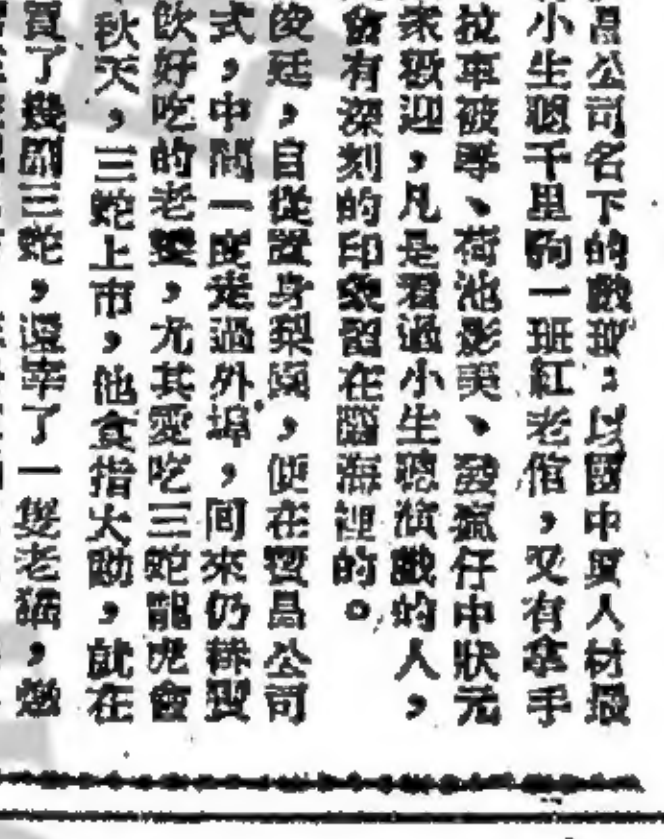 昌公司名下的戲班：以國中興人材最
小生聰千里駒一班紅老倌，又有拿手
拉車被辱、荷池影美、發瘋仔中狀元
來歡迎，凡是看過小生聰演戲的人，
會有深刻的印象留在腦海裡的。
俊廷，自從置身梨園，便在寶昌公司
式，中間一度走過外埠，回來仍歸寶
飲好吃的老饕，尤其愛吃三蛇龍虎會
秋天，三蛇上市，他食指大動，就在
買了幾副三蛇，還宰了一隻老貓，燉